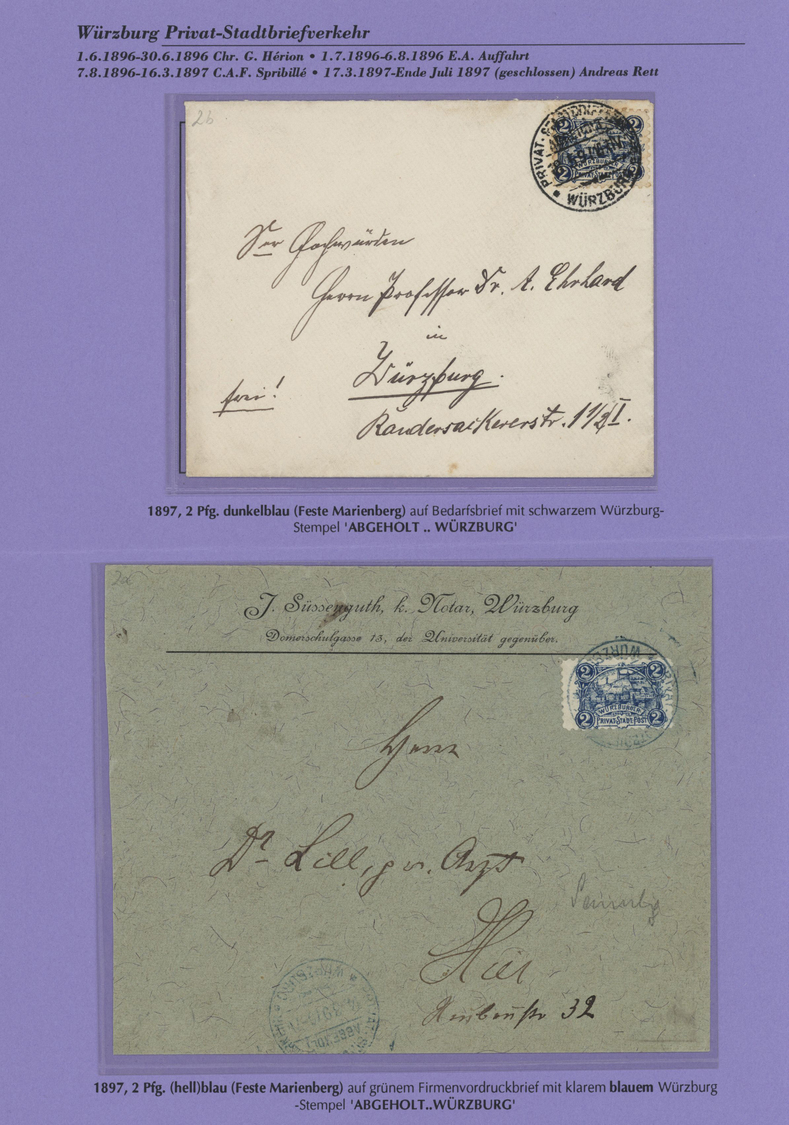 Würzburg Privat-Stadtbriefverkehr
1.6.1896-30.6.1896 Chr. G. Hérion • 1.7.1896-6.8.1896 E.A. Auffahrt
7.8.1896-16.3.1897 C.A.F. Spribillé • 17.3.1897-Ende Juli 1897 (geschlossen) Andreas Rett
2b
2 2
2
WÜRZBURG
Sr Hochwürden
Herrn Professor Dr. A. Ehrhard
in
Würzburg.
frei!
Randersackererstr. 11/2 I.
1897, 2 Pfg. dunkelblau (Feste Marienberg) auf Bedarfsbrief mit schwarzem Würzburg-
Stempel 'ABGEHOLT .. WÜRZBURG'
2a
J. Süssenguth, k. Notar, Würzburg
Domerschulgasse 13, der Universität gegenüber.
2 2
WÜRZBURGER
2 PRIVAT-STADT-POST 2
Herrn
Dr Lill, pr. Arzt
Hier
32
1897, 2 Pfg. (hell)blau (Feste Marienberg) auf grünem Firmenvordruckbrief mit klarem blauem Würzburg
-Stempel 'ABGEHOLT..WÜRZBURG'